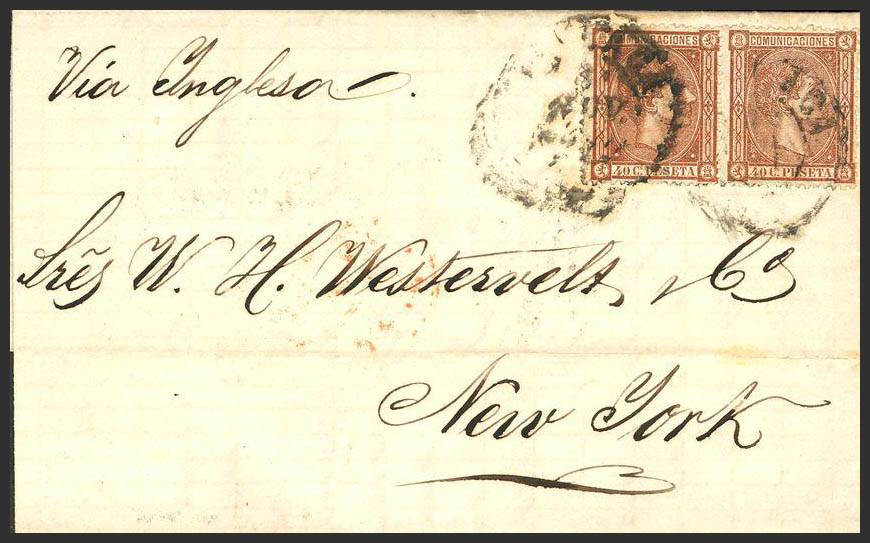 Via Inglesa.
COMUNICACIONES COMUNICACIONES
40 C. PESETA 40 C. PESETA
Srẽs W. H. Westervelt, & Cº
New York